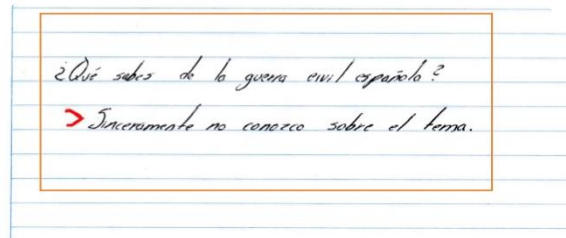 ¿Qué sabes de la guerra civil española?
> Sinceramente no conozco sobre el tema.